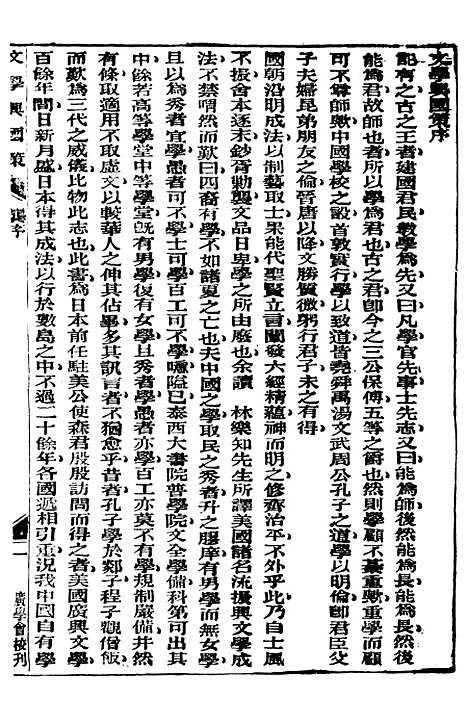 文學興國策序
記有之古之王者建國君民敎學爲先又曰凡學官先事士先志又曰能爲師然後能爲長能爲長然後
能爲君故師也者所以學爲君也古之君卽今之三公保傅五等之爵也然則學顧不綦重歟重學而顧
可不尊師歟中國學校之設首敦實行學以致道皆堯舜禹湯文武周公孔子之道學以明倫卽君臣父
子夫婦昆弟朋友之倫晉唐以降文勝質微躬行君子未之有得
國朝沿明成法以制藝取士果能代聖賢立言闡發六經精蘊神而明之修齊治平不外乎此乃自士風
不振舍本逐末鈔胥勦襲文品日卑學之所由廢也余讀 林樂知先生所譯美國諸名流振興文學成
法不禁喟然而歎曰四裔有學不如諸夏之亡也夫中國之學取民之秀者升之膠庠有男學而無女學
且以爲秀者宜學愚者可不學士可學百工可不學嚱隘已泰西大書院普學院文全學備科第可出其
中餘若高等學堂中等學堂旣有男學復有女學且秀者學愚者亦學百工亦莫不有學規制嚴備井然
有條取適用不取虛文以較華人之伸其佔畢多其訊言者不猶愈乎昔者孔子學於郯子程子觀僧飯
而歎爲三代之威儀比物此志也此書爲日本前任駐美公使森君殷殷訪問而得之者美國廣興文學
百餘年間日新月盛日本得其成法以行於數島之中不過二十餘年各國遞相引重況我中國自有學
文學興國策
序
一
廣學會校刊